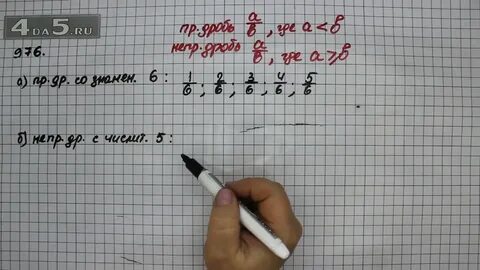 4DA5.RU
976.
пр.дробь a/b, где a < b
непр.дробь a/b, где a ⩾ b
а) пр.др. со знамен. 6 : 1/6 ; 2/6 ; 3/6 ; 4/6 ; 5/6
б) непр.др. с числит. 5 :